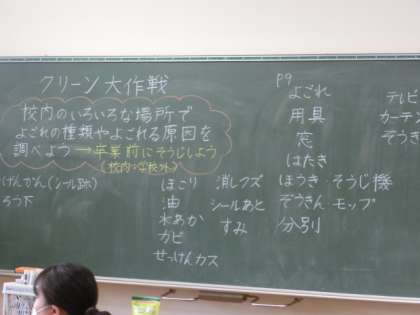 クリーン大作戦
校内のいろいろな場所で
よごれの種類やよごれる原因を
調べよう→卒業前にそうじしよう
げんかん(シール跡)
ろう下
ほこり
油
水あか
カビ
せっけんカス
消しクズ
シールあと
すみ
P9
よごれ
用具
窓
はたき
ほうき・そうじ機
ぞうきん・モップ
分別
テレビ
カーテン
ぞうき